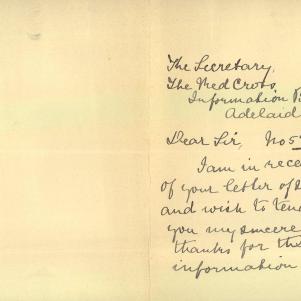 The Secretary,
The Red Cross,
Information
Adelaid
Dear Sir, No 5
I am in rece
of your letter of
and wish to ten
you my sincere
thanks for the
information